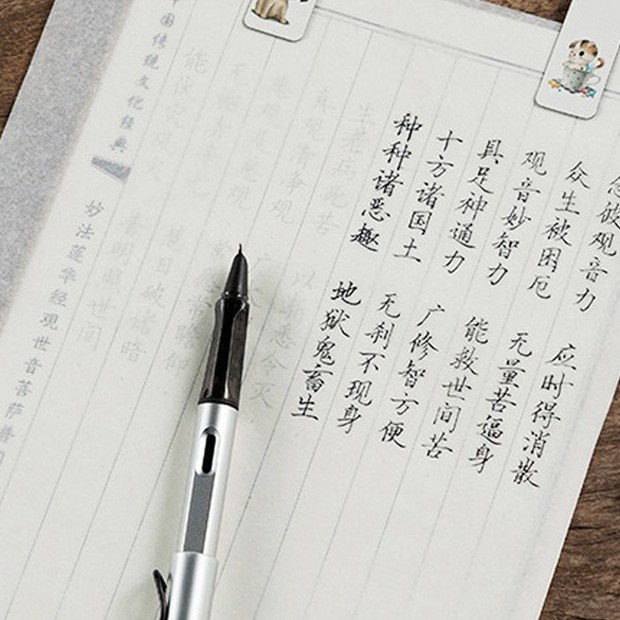 念彼观音力 应时得消散
众生被困厄 无量苦逼身
观音妙智力 能救世间苦
具足神通力 广修智方便
十方诸国土 无刹不现身
种种诸恶趣 地狱鬼畜生
生老病死苦 以渐悉令灭
真观清净观 广大
悲观及慈观 常瞻仰
无垢清净 慧日破诸暗
能伏灾风火 普明照世间
中国传统文化经典 妙法莲华经观世音菩萨普门